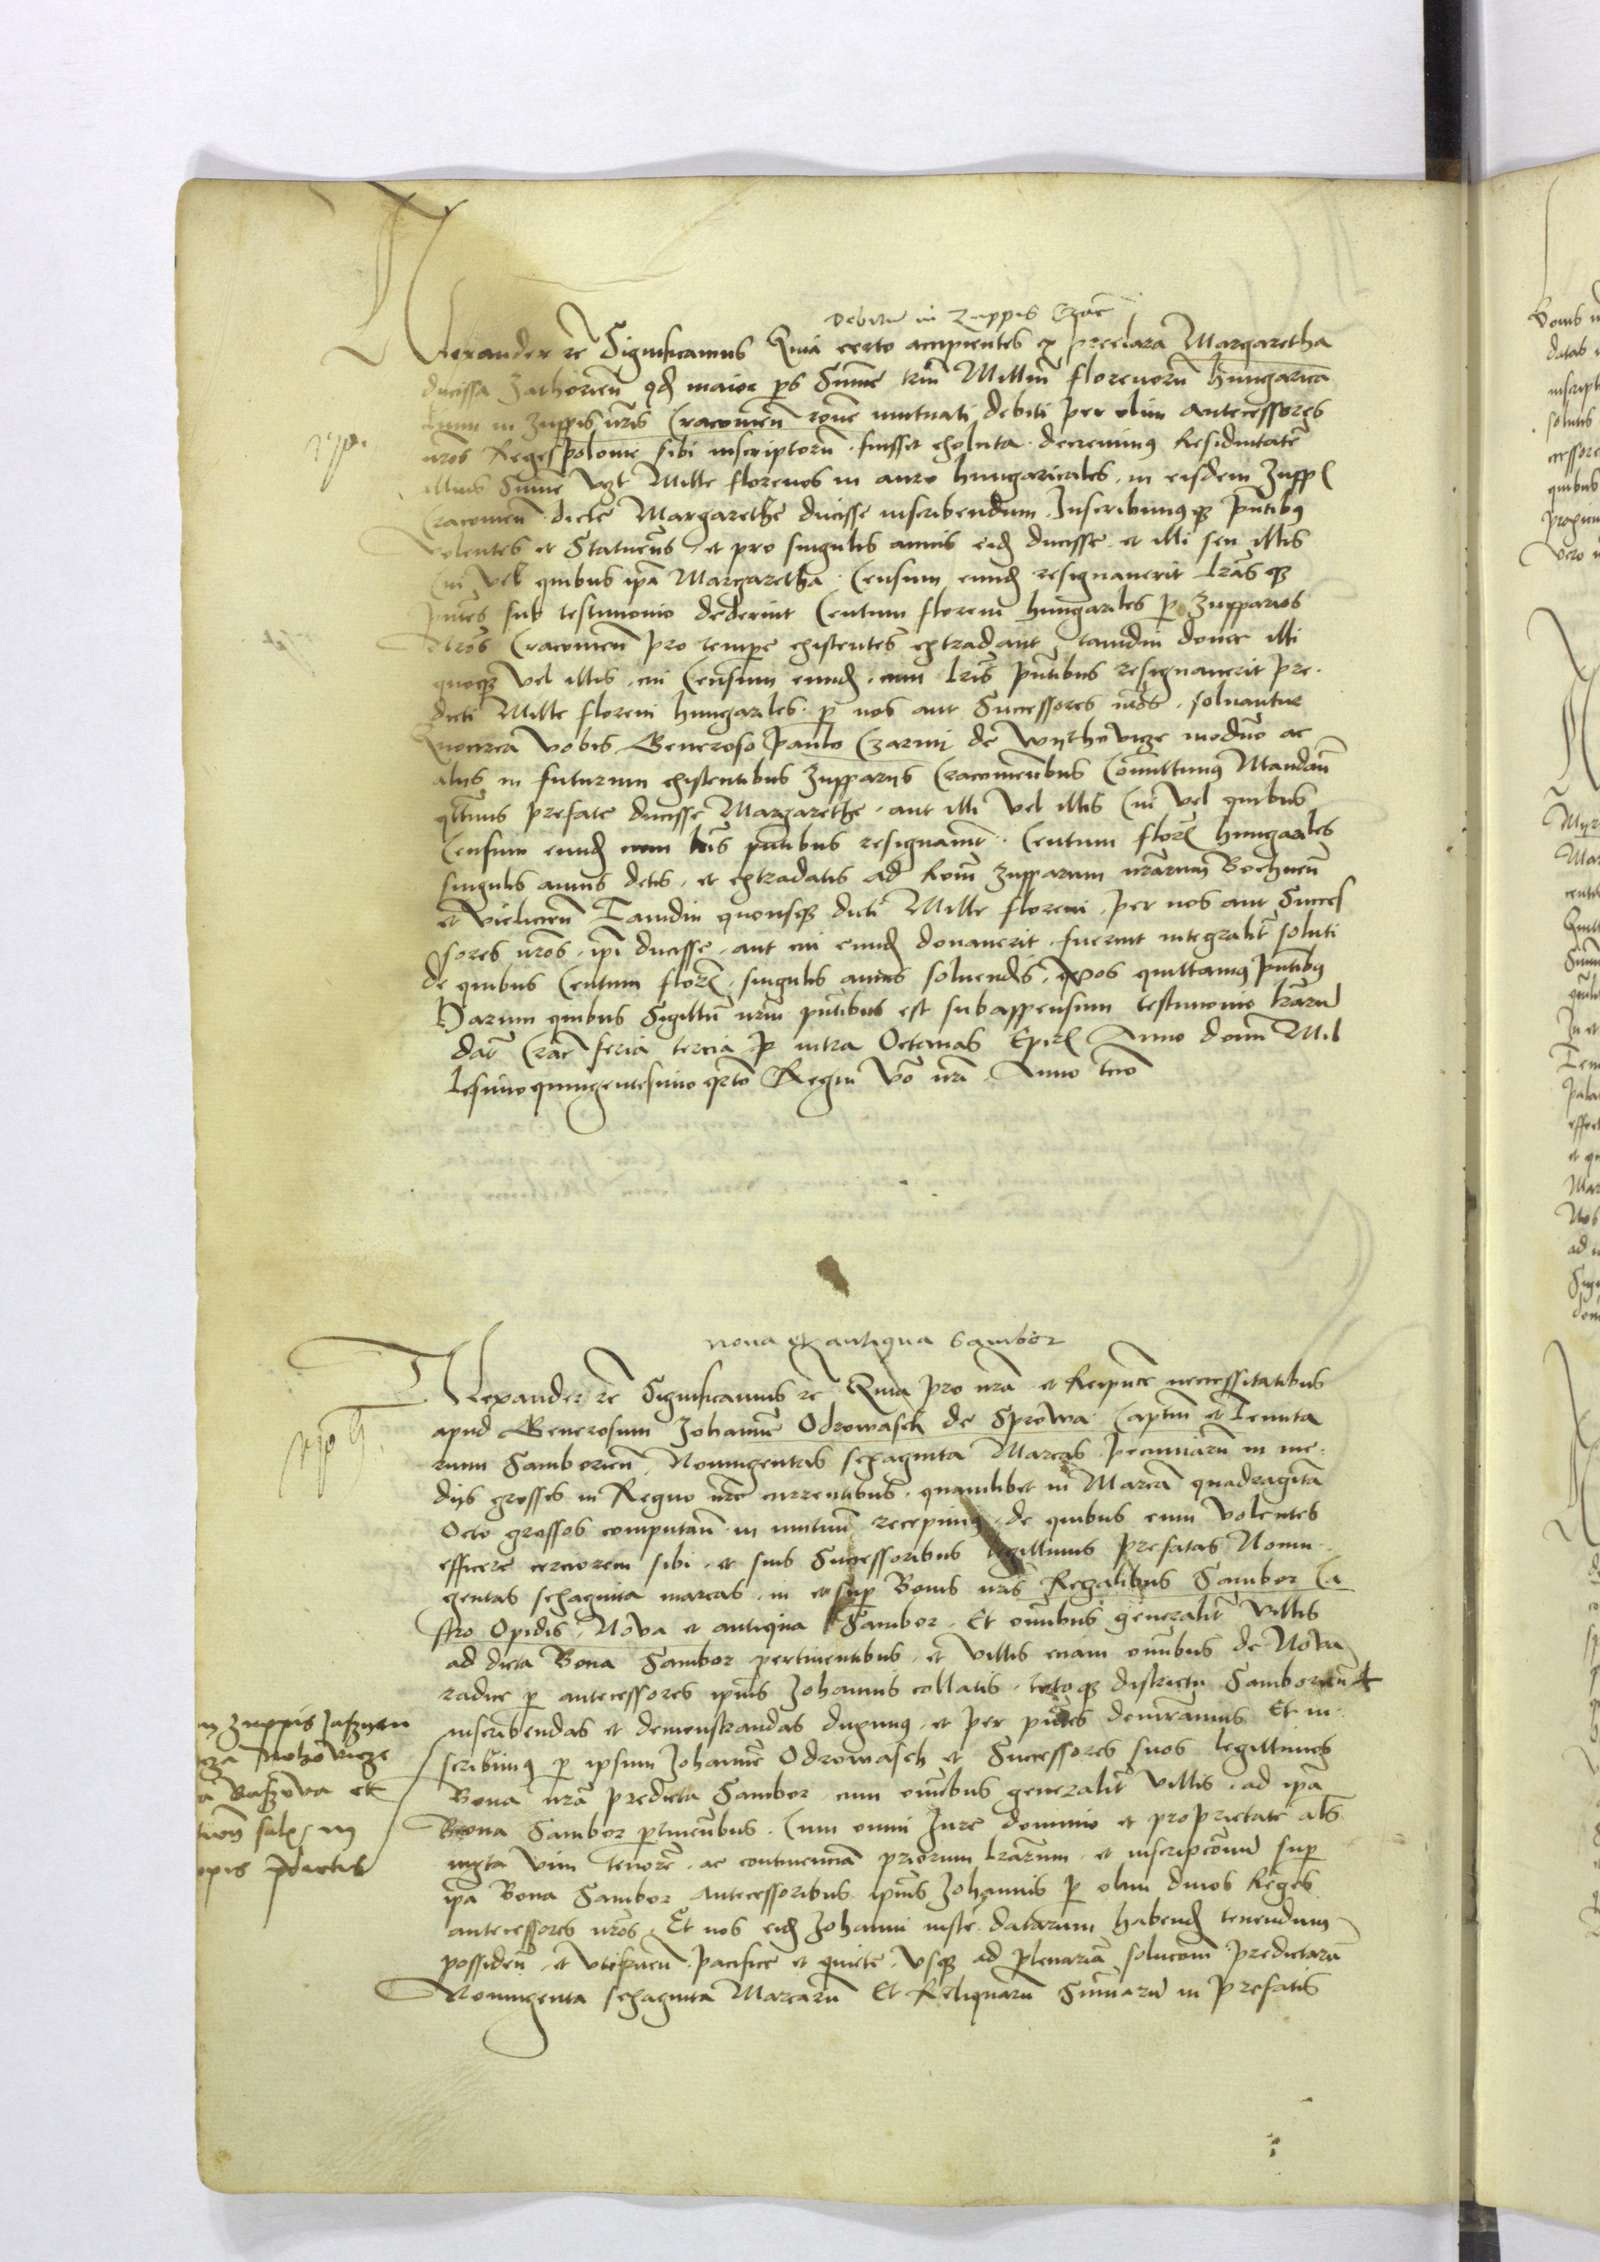 Debitum in Zuppis Crac̃
Alexander rẽ Significamus Quia certo accipientes ex preclara Margaretha
ducissa Zathorieñ qd maior ps Sum̃e triũ Milliũ florenorũ hungarica
lium in Zuppis nr̃is Cracovieñ rõne mutuati debiti per olim antecessores
nr̃os Reges polonie sibi inscriptorũ fuisset exoluta decrevimus Residuitatẽ
illius Sum̃e vzt Mille florenos in auro hungaricales in eisdem Zupp
Cracovieñ dicte Margarethe ducisse inscribendum Inscribimusqz pñtibus
Volentes et Statueñs et pro singulis annis eid ducisse et illi seu illis
Cui vel quibus ip̃a Margaretha Censum eund resignaverit lr̃asqz
pñtes sub testimonio dederint Centum floreni hungariles p Zupparios
Nr̃os Cracovieñ pro tempe existentes extradant tamdiu donec illi
quoqz vel illis cui Censum eund cum lr̃is pñtibus resignaverit pre
dicti Mille floreni hungariles p nos aut Successores nr̃os solvantur
Quocirca vobis Generoso Paulo Czarny de Wythovicze moderno ac
aliis in futurum existentibus Zuppariis Cracovieñbus Com̃ittimus Mandañ
qt̃inus prefate ducisse Margarethe aut illi vel illis Cui vel quibus
Censum eund cum lr̃is pñtibus resignaverit Centum flor hungariles
singulis annis detis et extradatis ad Rom̃ Zupparum nr̃arum Bochneñ
et Vielicieñ Tamdiu quousqz dicti Mille floreni per nos aut Succes
sores nr̃os ip̃i ducisse aut cui eund donaverit fuerint integralit̃ soluti
de quibus Centum flor singulis annis solvendis vos quittamus pñtibus
Harum quibus Sigillũ nr̃m pñtibus est subappensum testimonio lr̃arũ
dat̃ Crac̃ feria tercia ip̃ intra Octavas Epiph Anno domĩ Mil
lesimoquingentesimo qr̃to Regni vo nr̃i Anno tr̃cio
Nova et antiqua Sambor
Alexander rẽ Significamus rẽ Quia pro nr̃a et Reipubce neccessitatibus
apud Generosum Johannẽ Odrowasch de Sprowa Captm̃ et Tenuta
rium Samborieñ Noningentas sexaginta Marcas pecuniarũ in me
diis grossis in Regno nr̃o currentibus quamlibet in Marcã quadraginta
Octo grossos computañ in mutuũ recepimus de quibus eum volentes
efficere cerciorem sibi et suis Successoribus legittimis prefatas Nonin
gentas sexaginta marcas in et sup Bonis nr̃is Regalibus Sambor Ca
stro Opidis Nova et antiqua Sambor Et om̃ibus generalit̃ villis
ad dicta Bona Sambor pertinentibus et villis eciam om̃ibus de Nova
radice p antecessores ipĩus Johannis collatis totoqz districtu Samborieñ
inscribendas et demonstrandas duximus et per pñtes demr̃amus Et in
scribimus p ipsum Johannẽ Odrowasch et Successores suos legittimos
Bona nr̃a predicta Sambor cum om̃ibus generalit̃ villis ad ip̃a
Bona Sambor ptineñbus Cum omni Jure dominio et proprietate als
iuxta vim tenorẽ ac continenciã priorum lr̃arum et inscripcionũ sup
ip̃a Bona Sambor antecessoribus ipĩus Johannis p olim divos Reges
antecessores nr̃os Et nos eid Johanni iuste datarum habend tenendum
possideñ et utifrueñ pacifice et quiete Usqz ad plenariã solucõem predictarũ
Noningenta sexaginta Marcarũ Et Reliquarũ Sum̃arũ in prefatis
in Zuppis Jaszyen
cza Mohovicze
a Raszowa et
opis p̃dictis